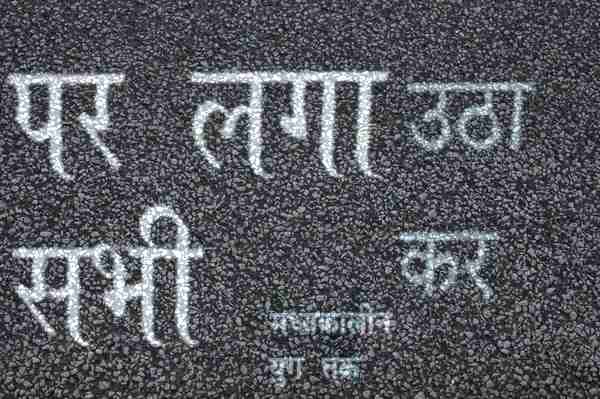 पर लगा उठा
सभी कर
मध्यकालीन
युग तक